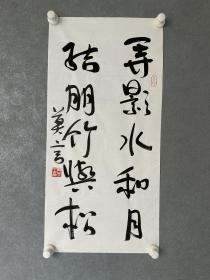 弄影水和月
结朋竹與松
莫言